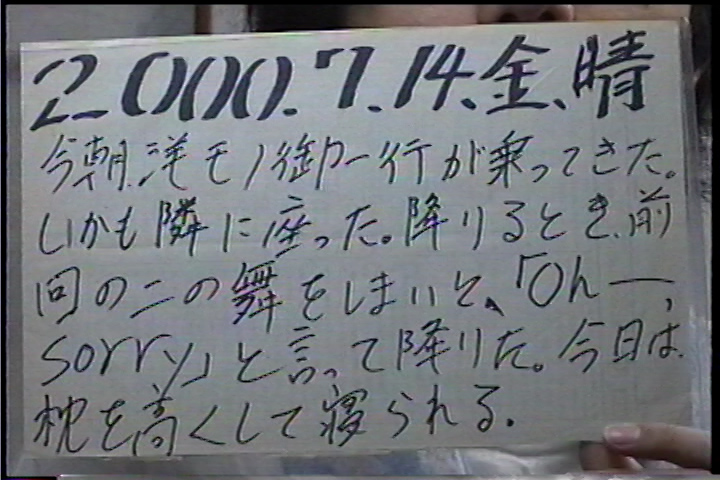 2000.7.14.金、晴
今朝、洋モノ御一行が乗ってきた。
しかも隣に座った。降りるとき、前
回の二の舞をしまいと、「Oh―,
sorry」と言って降りた。今日は
枕を高くして寝られる。